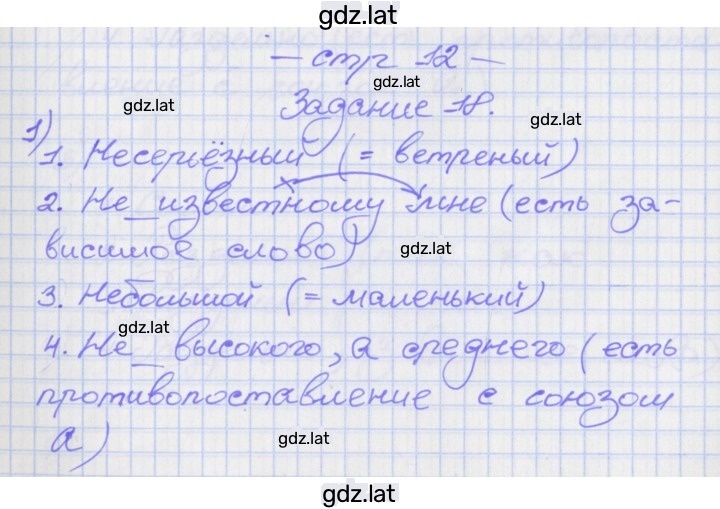 gdz.lat
— стр 12 —
gdz.lat
gdz.lat
Задание 18.
gdz.lat
1)
1. Несерьёзный (= ветреный)
2. Не_известному мне (есть за-
висимое слово)
gdz.lat
3. Небольшой (= маленький)
gdz.lat
4. Не_высокого, а среднего (есть
противопоставление с союзом
а)
gdz.lat
gdz.lat